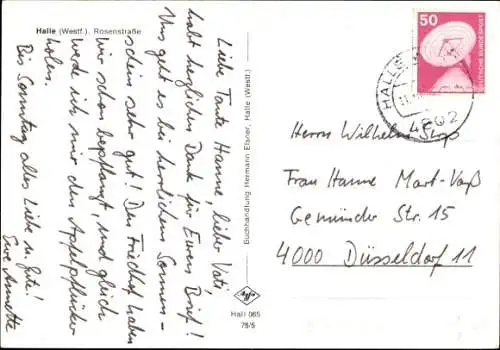 Halle (Westf.) Rosenstraße
Liebe Tante Hanne, lieber Vati,
habt herzlichen Dank für Euren Brief!
Uns geht es bei herrlichem Sonnen-
schein sehr gut! Den Friedhof haben
wir schon bepflanzt, und gleich
werde ich mir den Apfelpflücker
holen.
Bis Sonntag alles Liebe u. Gute!
Eure Annette
Buchhandlung Hermann Elsner, Halle (Westf.)
Agfa
Hall 065
78/5
50
DEUTSCHE BUNDESPOST
HALLE
4802
Herrn Wilhelm
Frau Hanne Mart-Voß
Gemünder Str. 15
4000 Düsseldorf 11